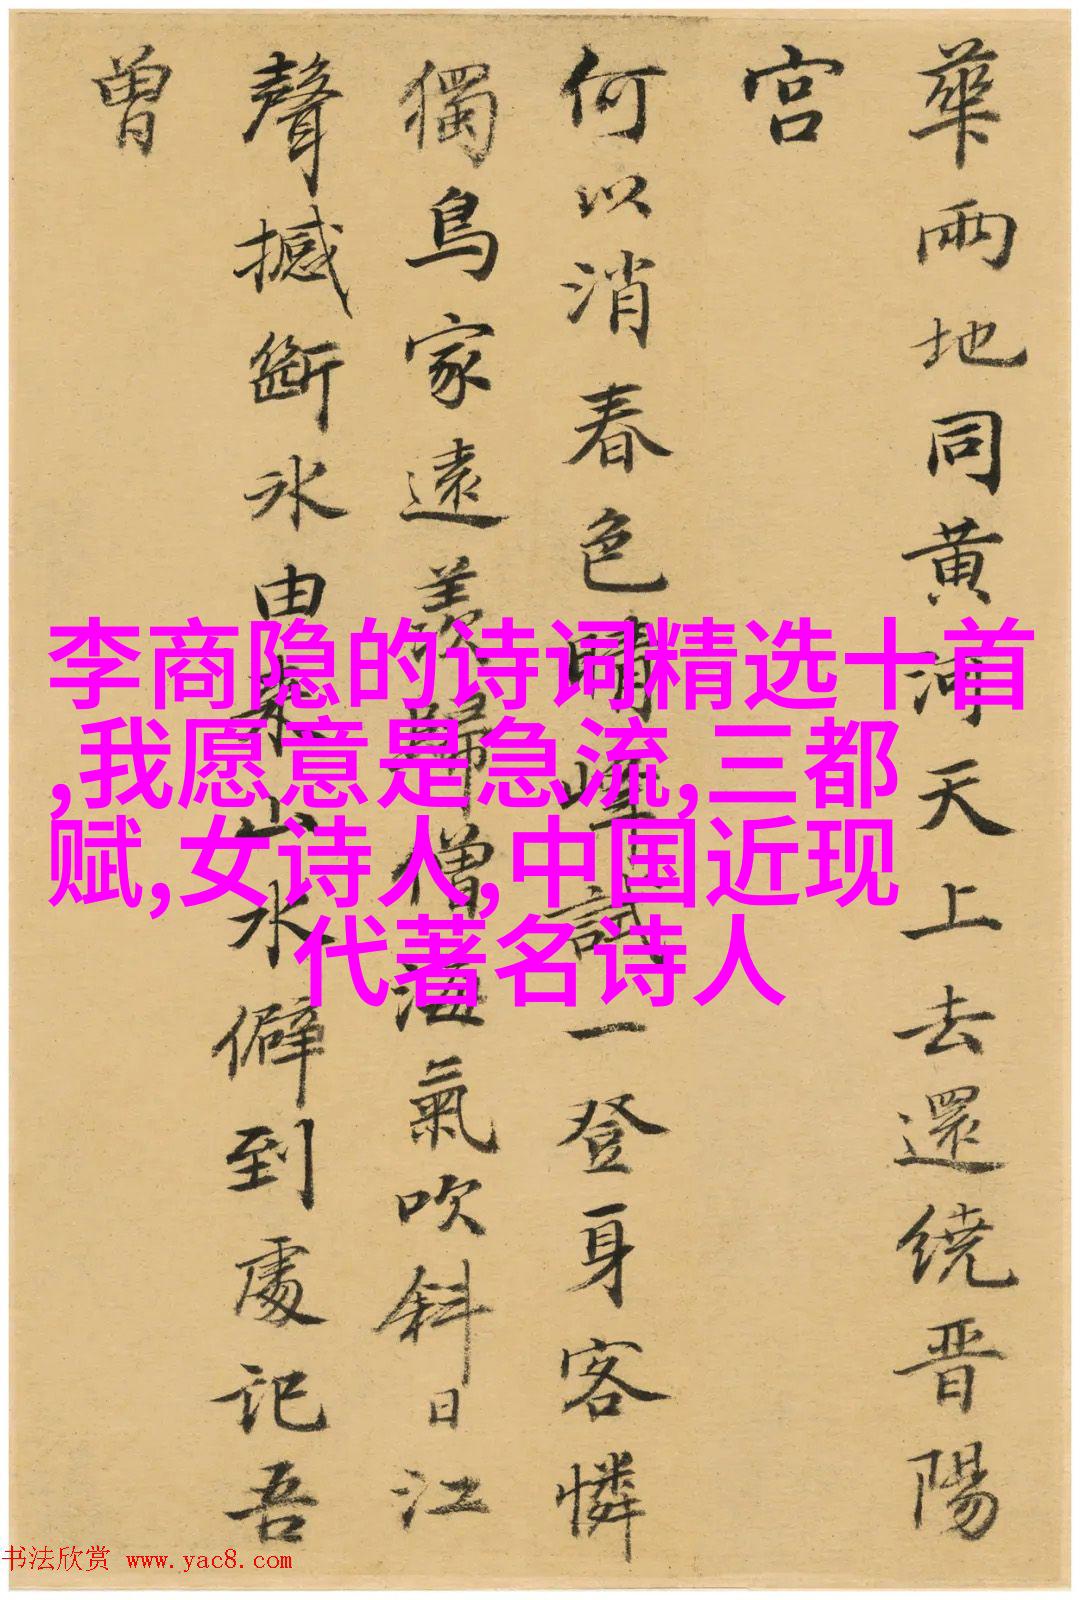 華兩地同黄河天上去還繞晋陽
宫
何以消春色晴峰試一登身客憐
獨鳥家遠羡歸僧海氣吹斜日江
聲撼斷氷由來山水僻到處記吾
曾
李商隐的诗词精选十首
,我愿意是急流,三都
赋,女诗人,中国近现
代著名诗人
书法欣赏 www.yac8.com